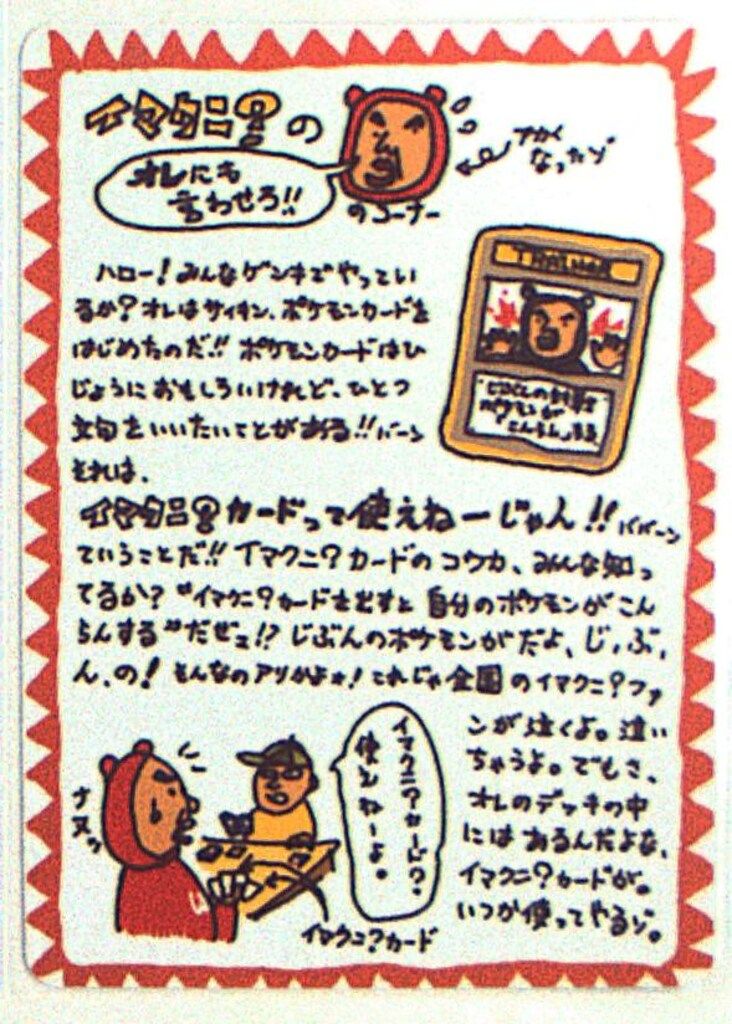 イマクニ？の
オレにも
言わせろ!!
のコーナー
なったゾ
ハロー！みんなゲンキでやってい
るか？オレはサイキン、ポケモンカードを
はじめたのだ!!ポケモンカードはひ
じょうにおもしろいけれど、ひとつ
文句をいいたいことがある!!バーン
それは、
TRAINER
ポケモンが
「こんらん」する
イマクニ？カードって使えねーじゃん!!ババーン
ていうことだ!!イマクニ？カードのコウカ、みんな知っ
てるか？“イマクニ？カードを出すと自分のポケモンがこん
らんする”だぜェ!?じぶんのポケモンがだよ、じ、ぶ、
ん、の！そんなのアリかよォ！これじゃ全国のイマクニ？ファ
ンが泣くよ。泣い
ちゃうよ。でもさ、
オレのデッキの中
にはあるんだよな、
イマクニ？カードが。
いつか使ってやるゾ。
イマクニ？カード？
使えねーよ。
ナヌッ
イマクニ？カード